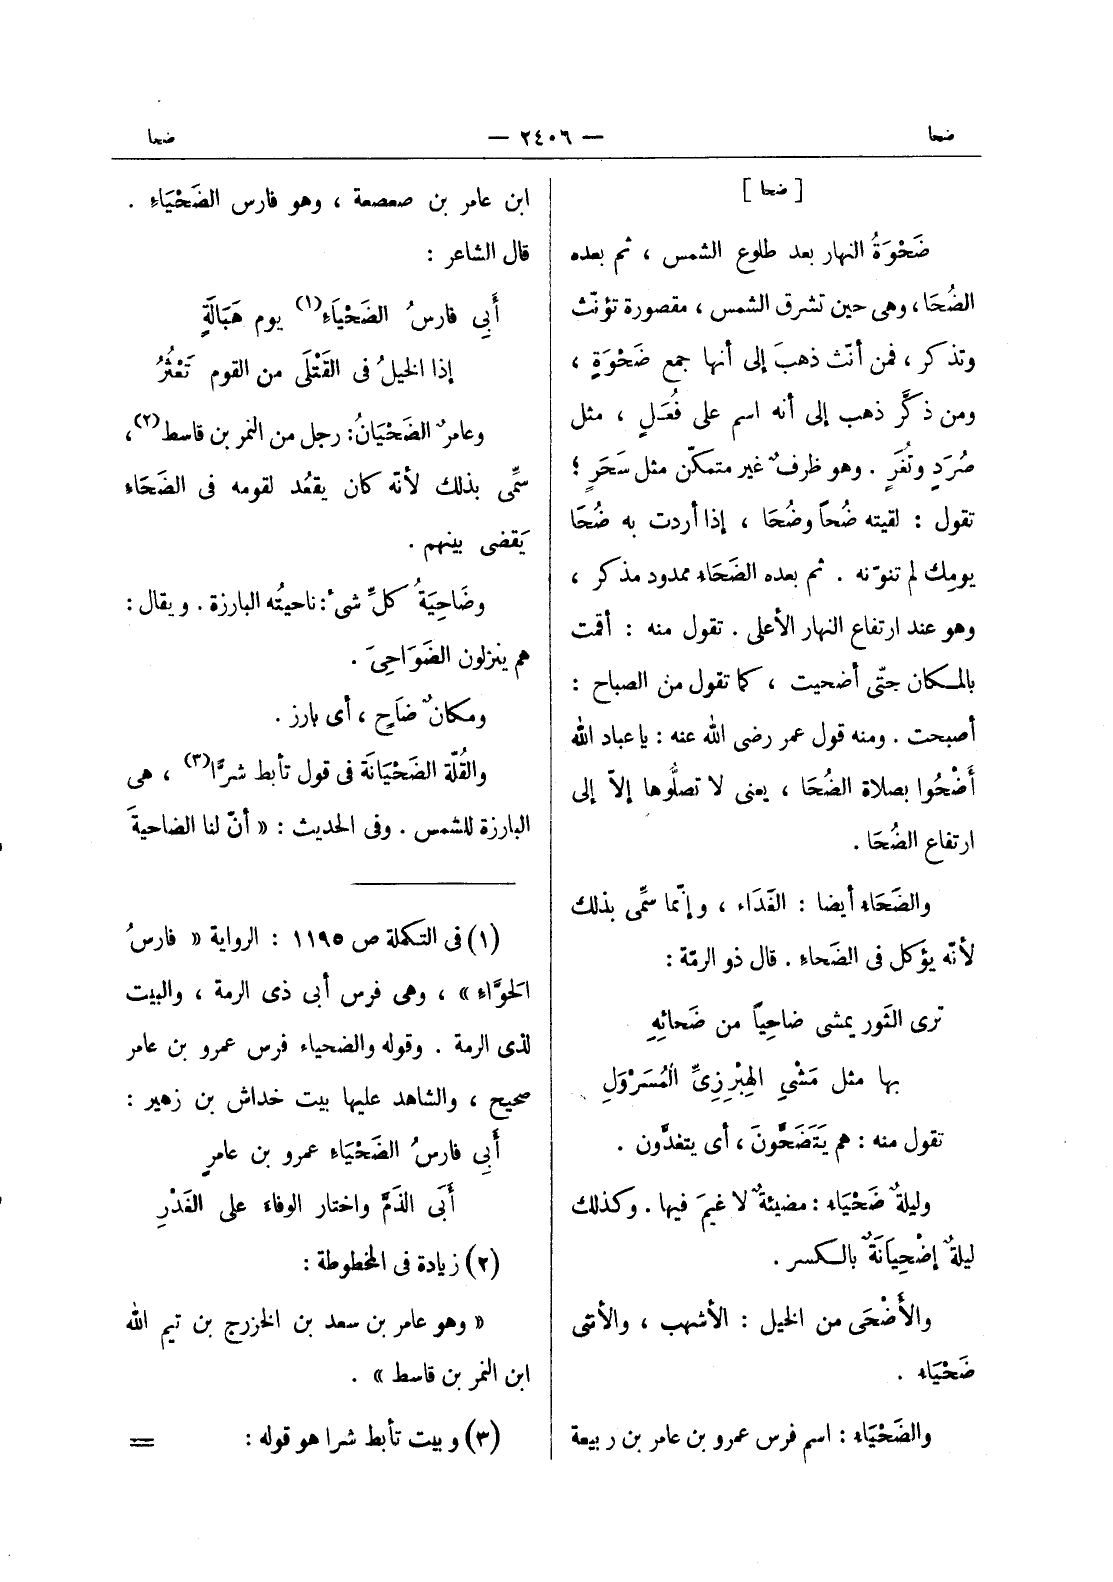 ضحا
— ٢٤٠٦ —
ضحا
[ ضحا ]
ضَحْوَةُ النهار بعد طلوع الشمس ، ثم بعده
الضُحَا، وهى حين تشرق الشمس ، مقصورة تؤنّث
وتذكر ، فمن أنّث ذهبَ إلى أنها جمع ضَحْوَةٍ ،
ومن ذكَّر ذهب إلى أنه اسم على فُعَلٍ ، مثل
صُرَدٍ ونُغَرٍ . وهو ظرفٌ غير متمكّن مثل سَحَرٍ ؛
تقول : لقيته ضُحاً وضُحَا ، إذا أردت به ضُحَا
يومِك لم تنوّنه . ثم بعده الضَحَاء ممدود مذكر ،
وهو عند ارتفاع النهار الأعلى . تقول منه : أقمت
بالمـكان حتّى أضحيت ، كما تقول من الصباح :
أصبحت . ومنه قول عمر رضى الله عنه : يا عباد الله
أَضْحُوا بصلاة الضُحَا ، يعنى لا تصلُّوها إلاّ إلى
ارتفاع الضُحَا .
والضَحَاء أيضا : الغَدَاء ، وإنّما سمِّى بذلك
لأنّه يؤكل فى الضَحاءِ . قال ذو الرمّة :
ترى الثَور يمشى ضاحِياً من ضَحائِهِ
بها مثل مَشْيِ الهِبْرِزِىِّ المُسَرْوَلِ
تقول منه : هم يَتَضَحَّونَ ، أى يتغدَّون .
وليلةٌ ضَحْيَاء : مضيئةٌ لا غيمَ فيها . وكذلك
ليلةٌ إضْحِيَانَةٌ بالـكسر .
والأَضْحَى من الخيل : الأشهب ، والأنثى
ضَحْيَاء .
والضَحْيَاء : اسم فرس عمرو بن عامر بن ربيعة
ابن عامر بن صعصعة ، وهو فارس الضَحْيَاءِ .
قال الشاعر :
أَبِي فارسُ الضَحْيَاءِ(١) يوم هَبَالَةٍ
إذا الخيلُ فى القَتْلَى من القوم تَعْثُرُ
وعامرٌ الضَحْيَانُ: رجل من النمر بن قاسط(٢) ،
سمِّى بذلك لأنّه كان يقعُد لقومه فى الضَحَاء
يَقضى بينهم .
وضَاحِيَةُ كلِّ شىء : ناحيتُه البارزة . ويقال :
هم ينزلون الضَوَاحِىَ .
ومكانٌ ضَاحٍ ، أى بارز .
والقُلّة الضَحْيَانَة فى قول تأبط شرًّا(٣) ، هى
البارزة للشمس . وفى الحديث : « أنّ لنا الضاحيةَ
(١) فى التكملة ص ١١٩٥ : الرواية « فارسُ
الحَوَّاءِ » ، وهى فرس أبى ذى الرمة ، والبيت
لذى الرمة . وقوله والضحياء فرس عمرو بن عامر
صحيح ، والشاهد عليها بيت خداش بن زهير :
أَبِي فارسُ الضَحْيَاءِ عمرو بن عامرٍ
أَبَى الذَمَّ واختار الوفاءَ على الغَدْرِ
(٢) زيادة فى المخطوطة :
« وهو عامر بن سعد بن الخزرج بن تيم الله
ابن النمر بن قاسط » .
(٣) وبيت تأبط شرا هو قوله : =